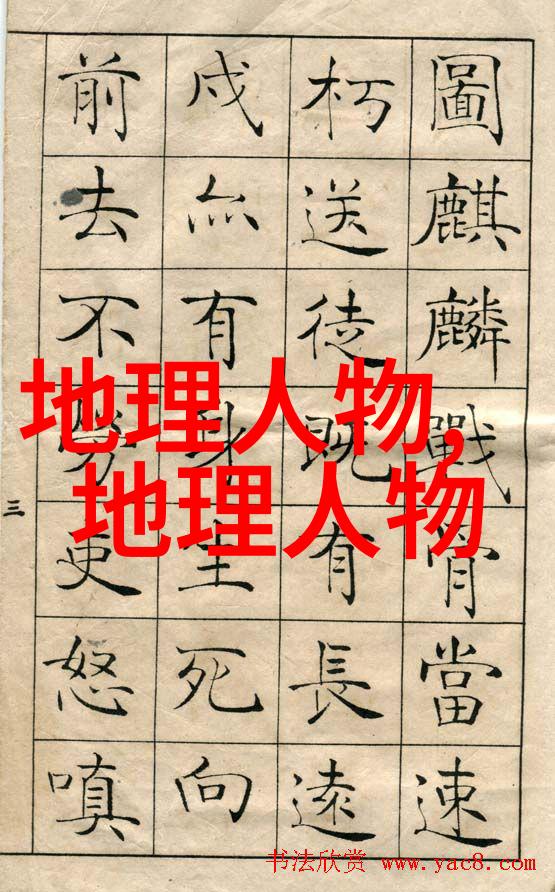 圖麒麟戰骨當速
朽送徒既有長遠
戍亦有身生死向
前去不勞吏怒嗔
三
地理人物,
地理人物
书法欣赏 www.yac8.com